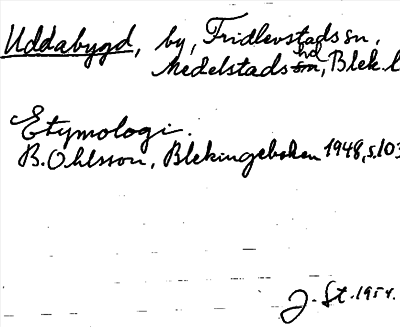 Uddabygd, by, Fridlevstads sn,
Medelstads hd, Blek. l
Etymologi.
B. Ohlsson, Blekingeboken 1948, s. 103
J. St. 1954.